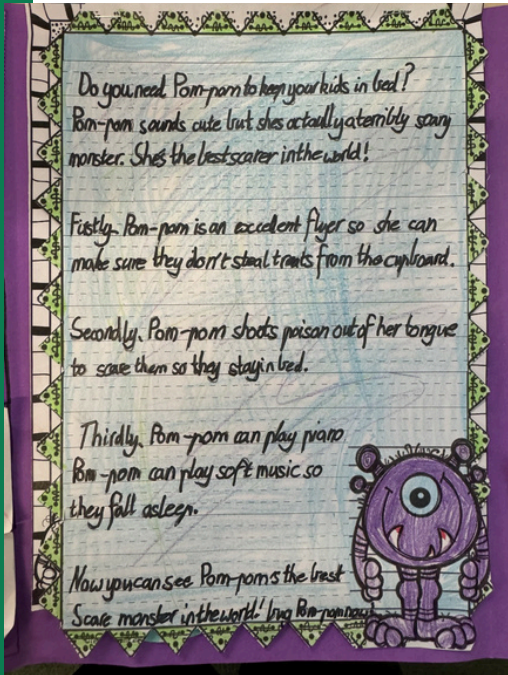 Do you need Pom-pom to keep your kids in bed?
Pom-pom sounds cute but shes actually a terribly scary
monster. She's the best scarer in the world!
Firstly. Pom-pom is an excellent flyer so she can
make sure they don't steal treats from the cupboard.
Secondly, Pom-pom shoots poison out of her tongue
to scare them so they stay in bed.
Thirdly, Pom-pom can play piano
Pom-pom can play soft music so
they fall asleep.
Now you can see Pom-pom's the best
Scare monster in the world! buy Pom-pom now